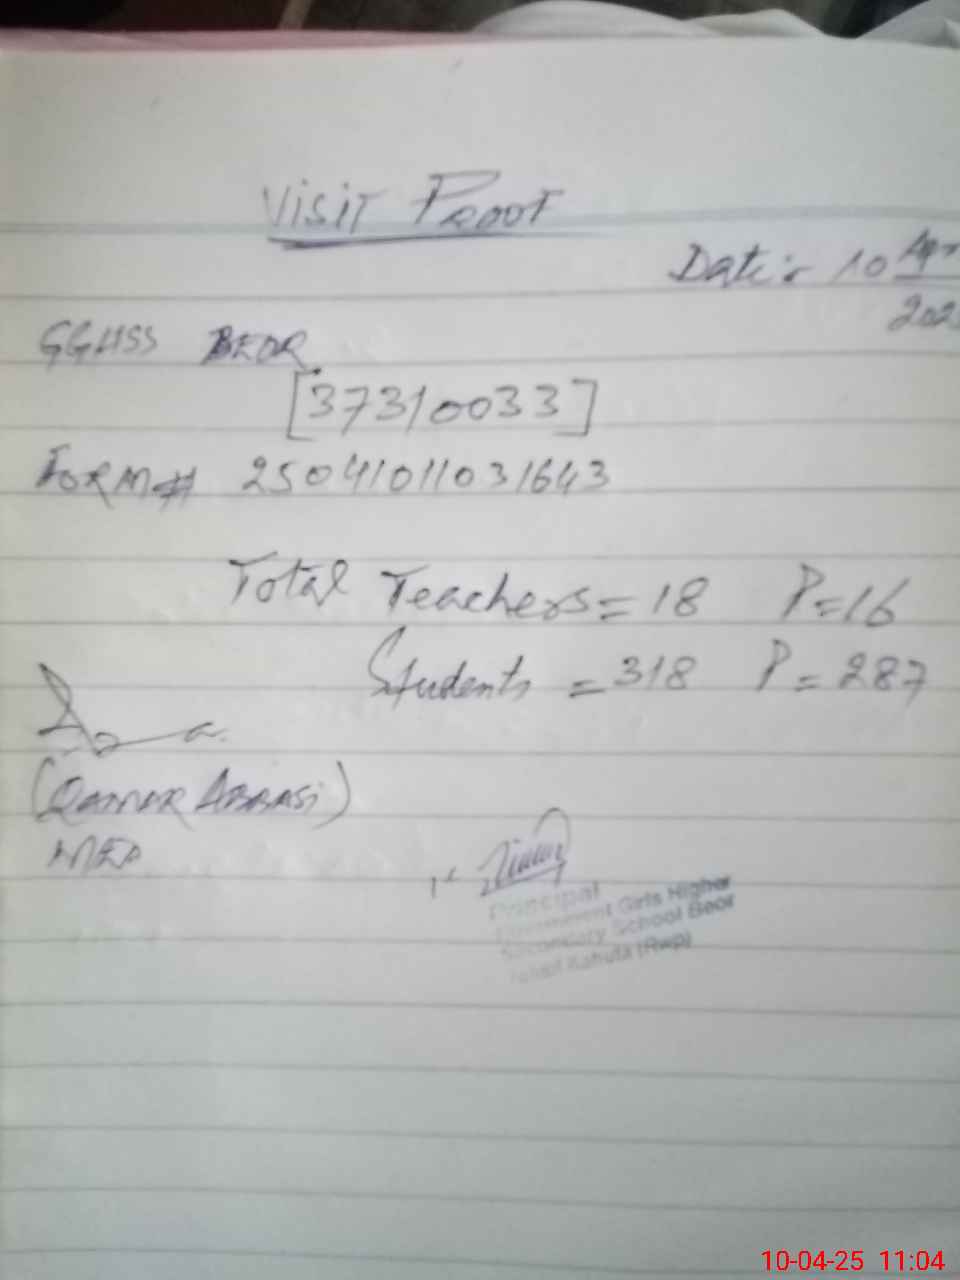 Visit Proof
Date:- 10 Apr
202
GGHSS BEOR
[37310033]
FORM# 25041011031643
Total Teachers = 18 P=16
Students = 318 P = 287
(QAMAR ABBASi)
MEA
Principal
Government Girls Higher
Secondary School Beor
Tehsil Kahuta (Rwp)
10-04-25 11:04